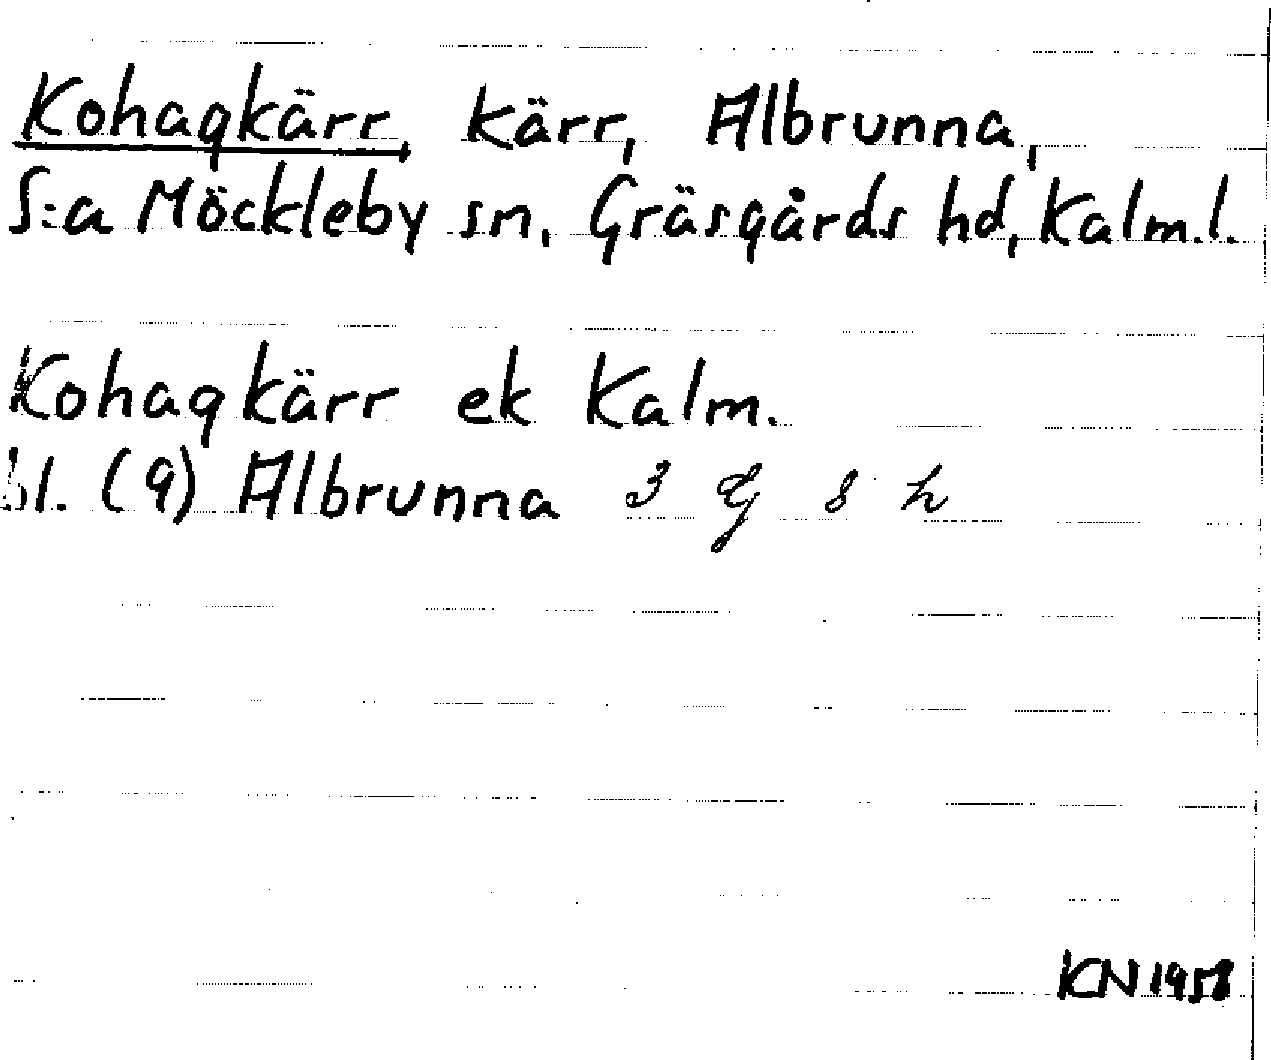 Kohagkärr, kärr, Albrunna,
S:a Möckleby sn, Gräsgårds hd, Kalm.l.
Kohagkärr ek Kalm.
bl. (9) Albrunna 3 G 8 h
KN 1958